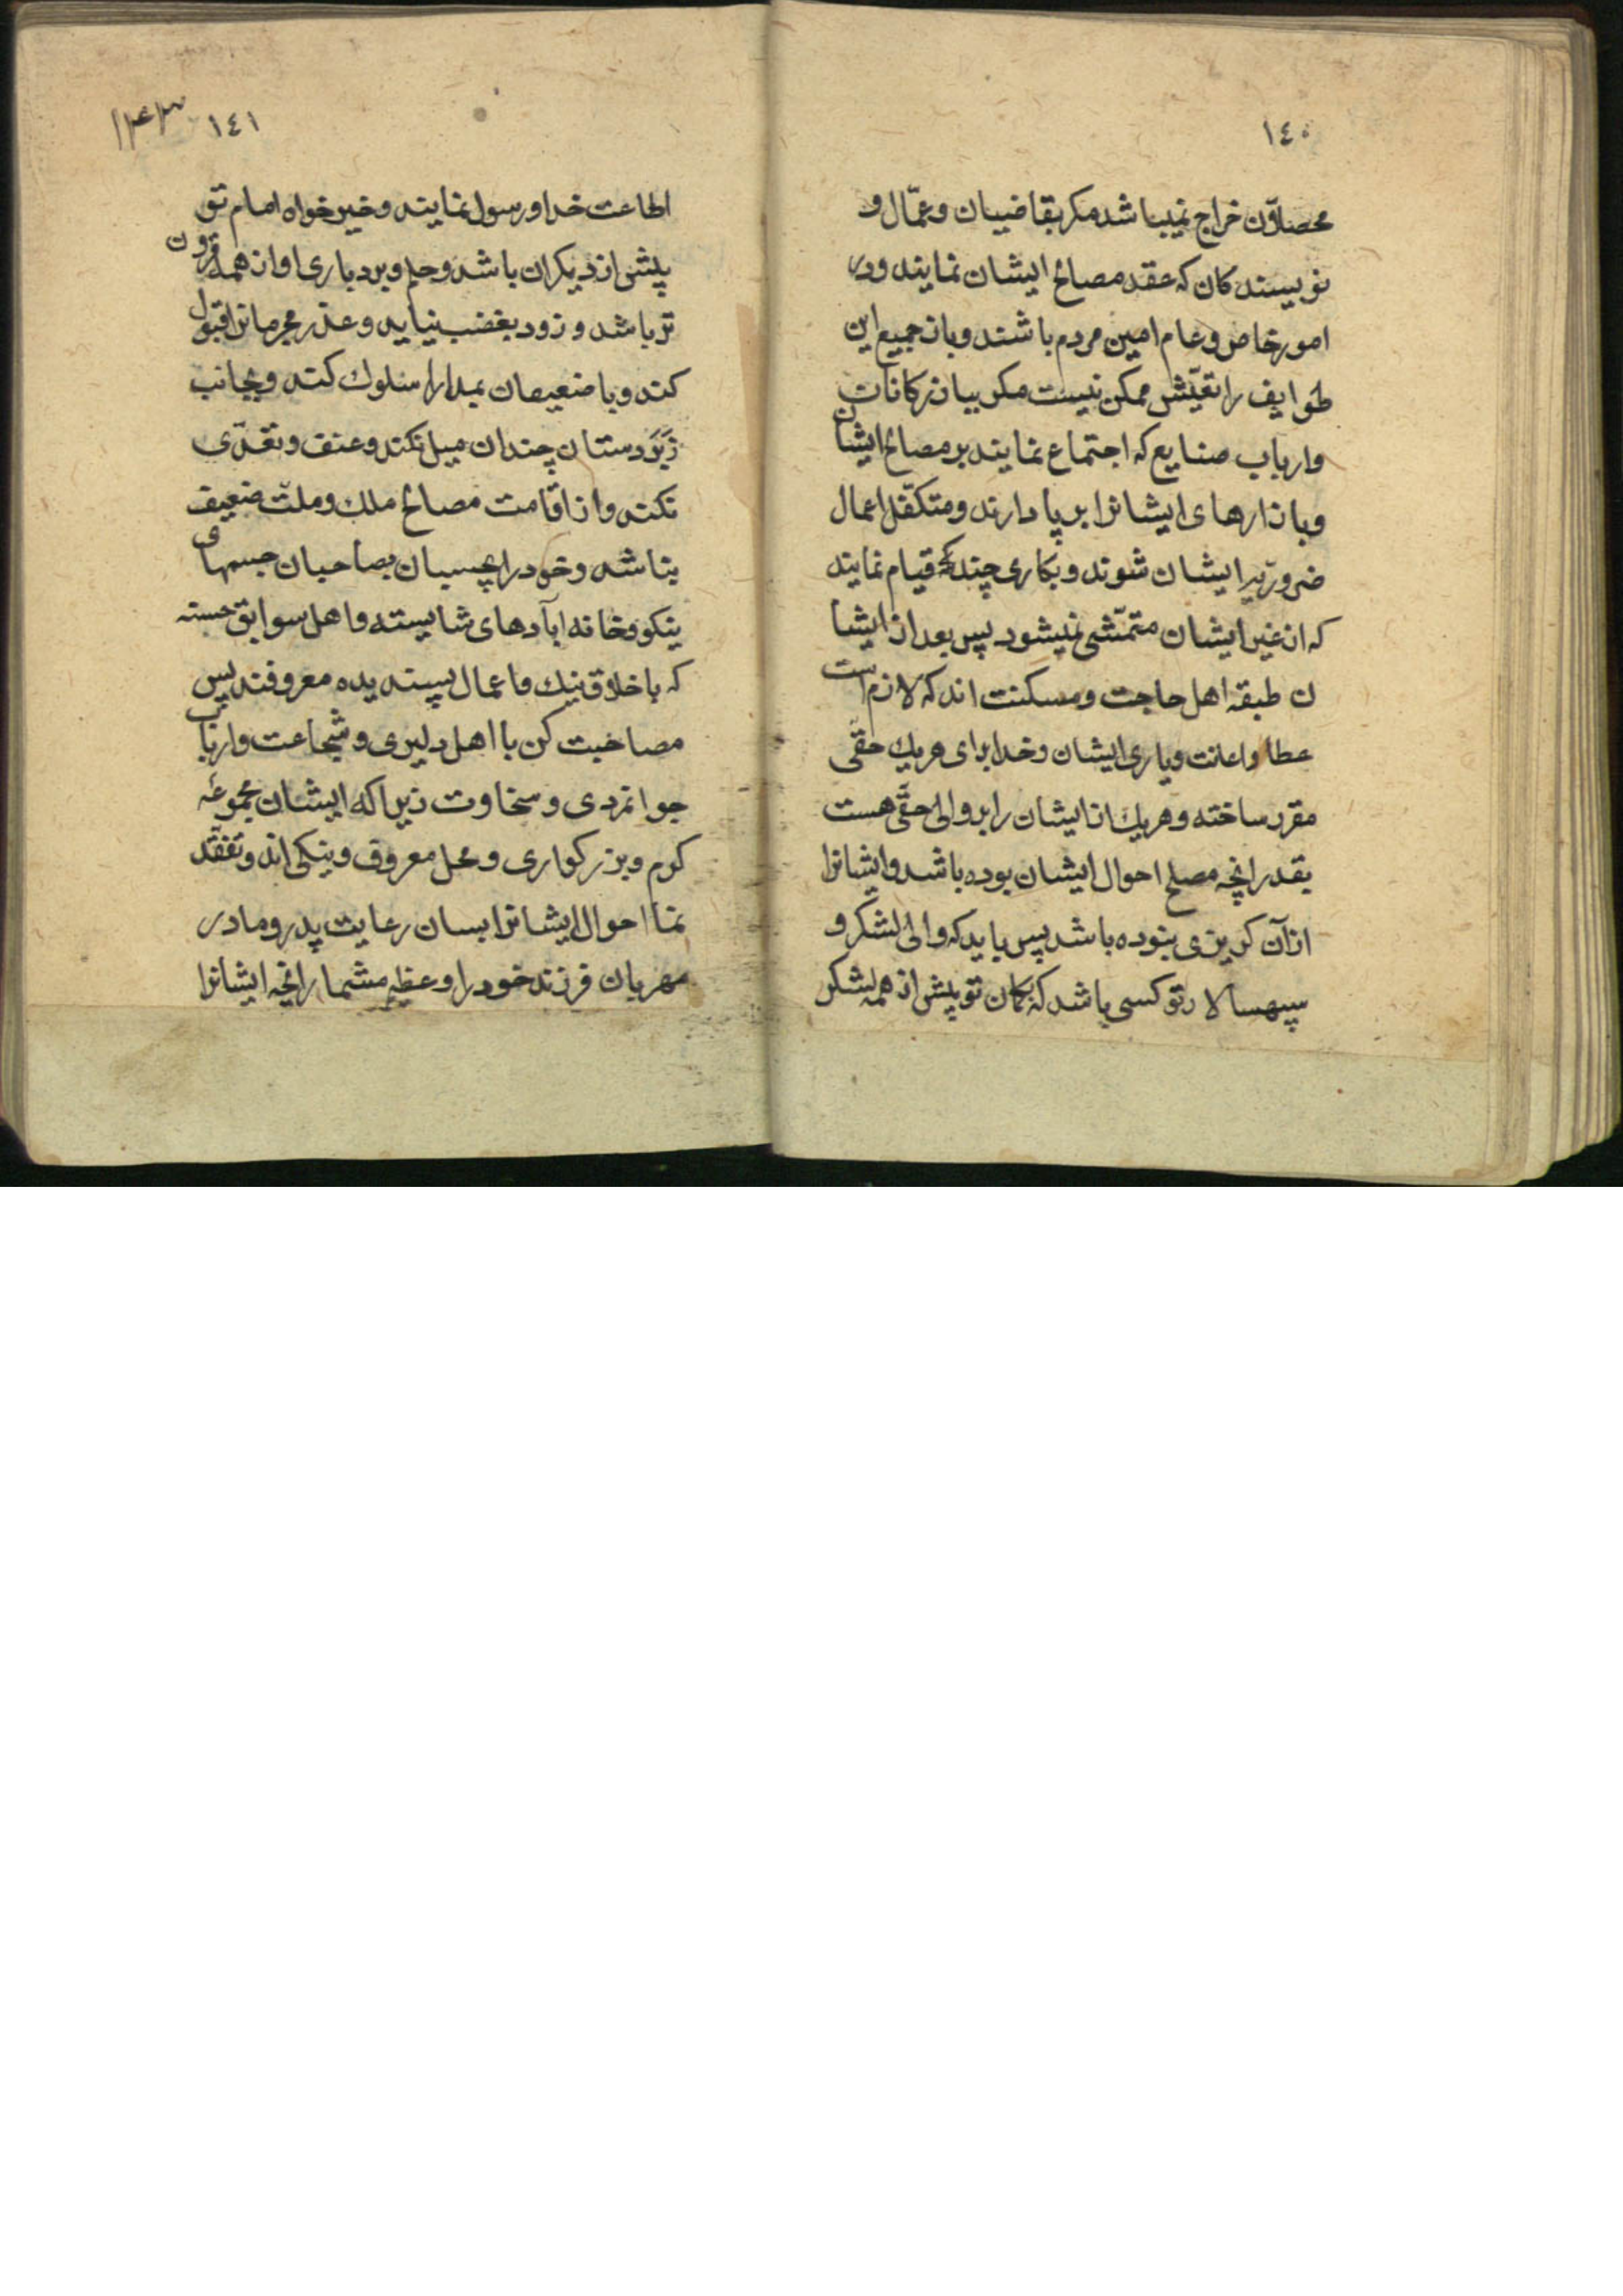 ١٤٠
محصلان خراج نمیباشد مکر بقاضییان و عمّال و
نویسندکان که عقد مصالح ایشان نمایند و در
امور خاص و عام امین مردم باشند و باز جمیع این
طوایف را تعیّش ممکن نیست مکر ببازرکانان
و ارباب صنایع که اجتماع نمایند بر مصالح ایشان
و بازارهای ایشانرا بر پا دارند و متکفّل اعمال
ضروریه ایشان شوند و بکاری چند که قیام نمایند
که از غیر ایشان متمشّی نمیشود پس بعد از ایشا
ن طبقه اهل حاجت و مسکنت اند که لازم است
عطا و اعانت و یاری ایشان و خدا برای هر یك حقّی
مقرر ساخته و هر یك از ایشان را بر والی حقّی هست
بقدر انچه مصلح احوال ایشان بوده باشد و ایشانرا
از آن کریزی نبوده باشد پس باید که والی لشکر و
سپهسالار تو کسی باشد که بکمان تو پیش از همه لشکر
١٤١
۱۴۳
اطاعت خدا و رسول نمایند و خیر خواه امام تو
پیش از دیکران باشد و حلم و بردباری او از همه فزون
تر باشد و زود بغضب نیاید و عذر مجرمانرا قبول
کند و با ضعیفان بمدارا سلوك کند و بجانب
زبردستان چندان میل نکند و عنف و تعدّی
نکند و از اقامت مصالح ملك و ملّت ضعیف
نباشد و خود را بچسبان بصاحبان جسمهای
نیکو و خانه ابادهای شایسته و اهل سوابق حسنه
که باخلاق نیك و اعمال پسندیده معروفند پس
مصاحبت کن با اهل دلیری و شجاعت و ارباب
جوانمردی و سخاوت زیرا که ایشان مجموعهٔ
کرم و بزرکواری و محل معروف و نیکی اند و تفقّد
نما احوال ایشانرا بسان رعایت پدر و مادر
مهربان فرزند خود را و عظیم مشمار انچه ایشانرا